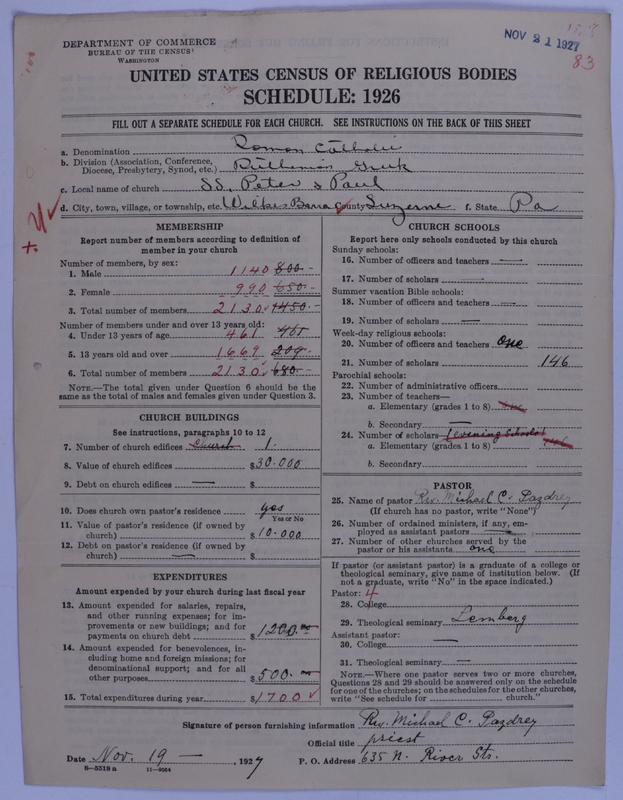 DEPARTMENT OF COMMERCE
BUREAU OF THE CENSUS
WASHINGTON
NOV 21 1927
83
UNITED STATES CENSUS OF RELIGIOUS BODIES
SCHEDULE: 1926
FILL OUT A SEPARATE SCHEDULE FOR EACH CHURCH. SEE INSTRUCTIONS ON THE BACK OF THIS SHEET
a. Denomination Roman Catholic
b. Division (Association, Conference, Diocese, Presbytery, Synod, etc.) Ruthenian Greek
c. Local name of church SS. Peter & Paul
d. City, town, village, or township, etc. Wilkes Barre County Luzerne f. State Pa
MEMBERSHIP
Report number of members according to definition of member in your church
Number of members, by sex:
1. Male 1140 800
2. Female 990 650
3. Total number of members 2130 1450
Number of members under and over 13 years old:
4. Under 13 years of age 461
5. 13 years old and over 1669 209
6. Total number of members 2130 680
NOTE.—The total given under Question 6 should be the same as the total of males and females given under Question 3.
CHURCH BUILDINGS
See instructions, paragraphs 10 to 12
7. Number of church edifices Church 1.
8. Value of church edifices $30.000
9. Debt on church edifices — $
10. Does church own pastor's residence yes
Yes or No
11. Value of pastor's residence (if owned by church) $10.000
12. Debt on pastor's residence (if owned by church) — $
EXPENDITURES
Amount expended by your church during last fiscal year
13. Amount expended for salaries, repairs, and other running expenses; for improvements or new buildings; and for payments on church debt $1200.00
14. Amount expended for benevolences, including home and foreign missions; for denominational support; and for all other purposes $500.00
15. Total expenditures during year $1700
CHURCH SCHOOLS
Report here only schools conducted by this church
Sunday schools:
16. Number of officers and teachers —
17. Number of scholars —
Summer vacation Bible schools:
18. Number of officers and teachers —
19. Number of scholars —
Week-day religious schools:
20. Number of officers and teachers one
21. Number of scholars 146
Parochial schools:
22. Number of administrative officers
23. Number of teachers—
a. Elementary (grades 1 to 8) one
b. Secondary —
24. Number of scholars (evening School)
a. Elementary (grades 1 to 8) 146
b. Secondary
PASTOR
25. Name of pastor Rev. Michael C. Pazdrey
(If church has no pastor, write "None")
26. Number of ordained ministers, if any, employed as assistant pastors —
27. Number of other churches served by the pastor or his assistants one
If pastor (or assistant pastor) is a graduate of a college or theological seminary, give name of institution below. (If not a graduate, write "No" in the space indicated.)
Pastor: 4
28. College
29. Theological seminary Lemberg
Assistant pastor:
30. College —
31. Theological seminary —
NOTE.—Where one pastor serves two or more churches, Questions 28 and 29 should be answered only on the schedule for one of the churches; on the schedules for the other churches, write "See schedule for church."
Signature of person furnishing information Rev. Michael C. Pazdrey
Official title priest
Date Nov. 19 — , 1927 P. O. Address 635 N. River Str.
8—5518 a 11—9064